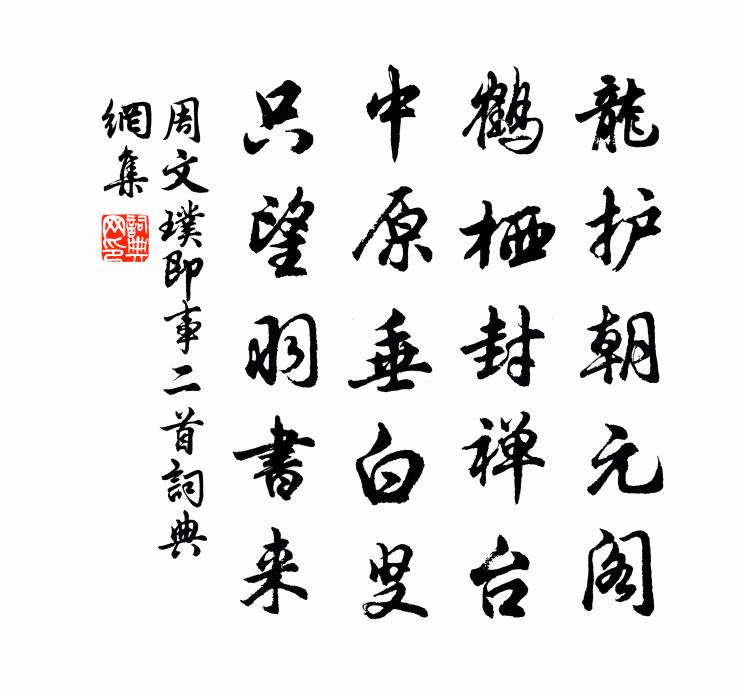 龍护朝元阁
鶴栖封禅台
中原垂白叟
只望羽書来
周文璞即事二首詞典
網集
詞典網印